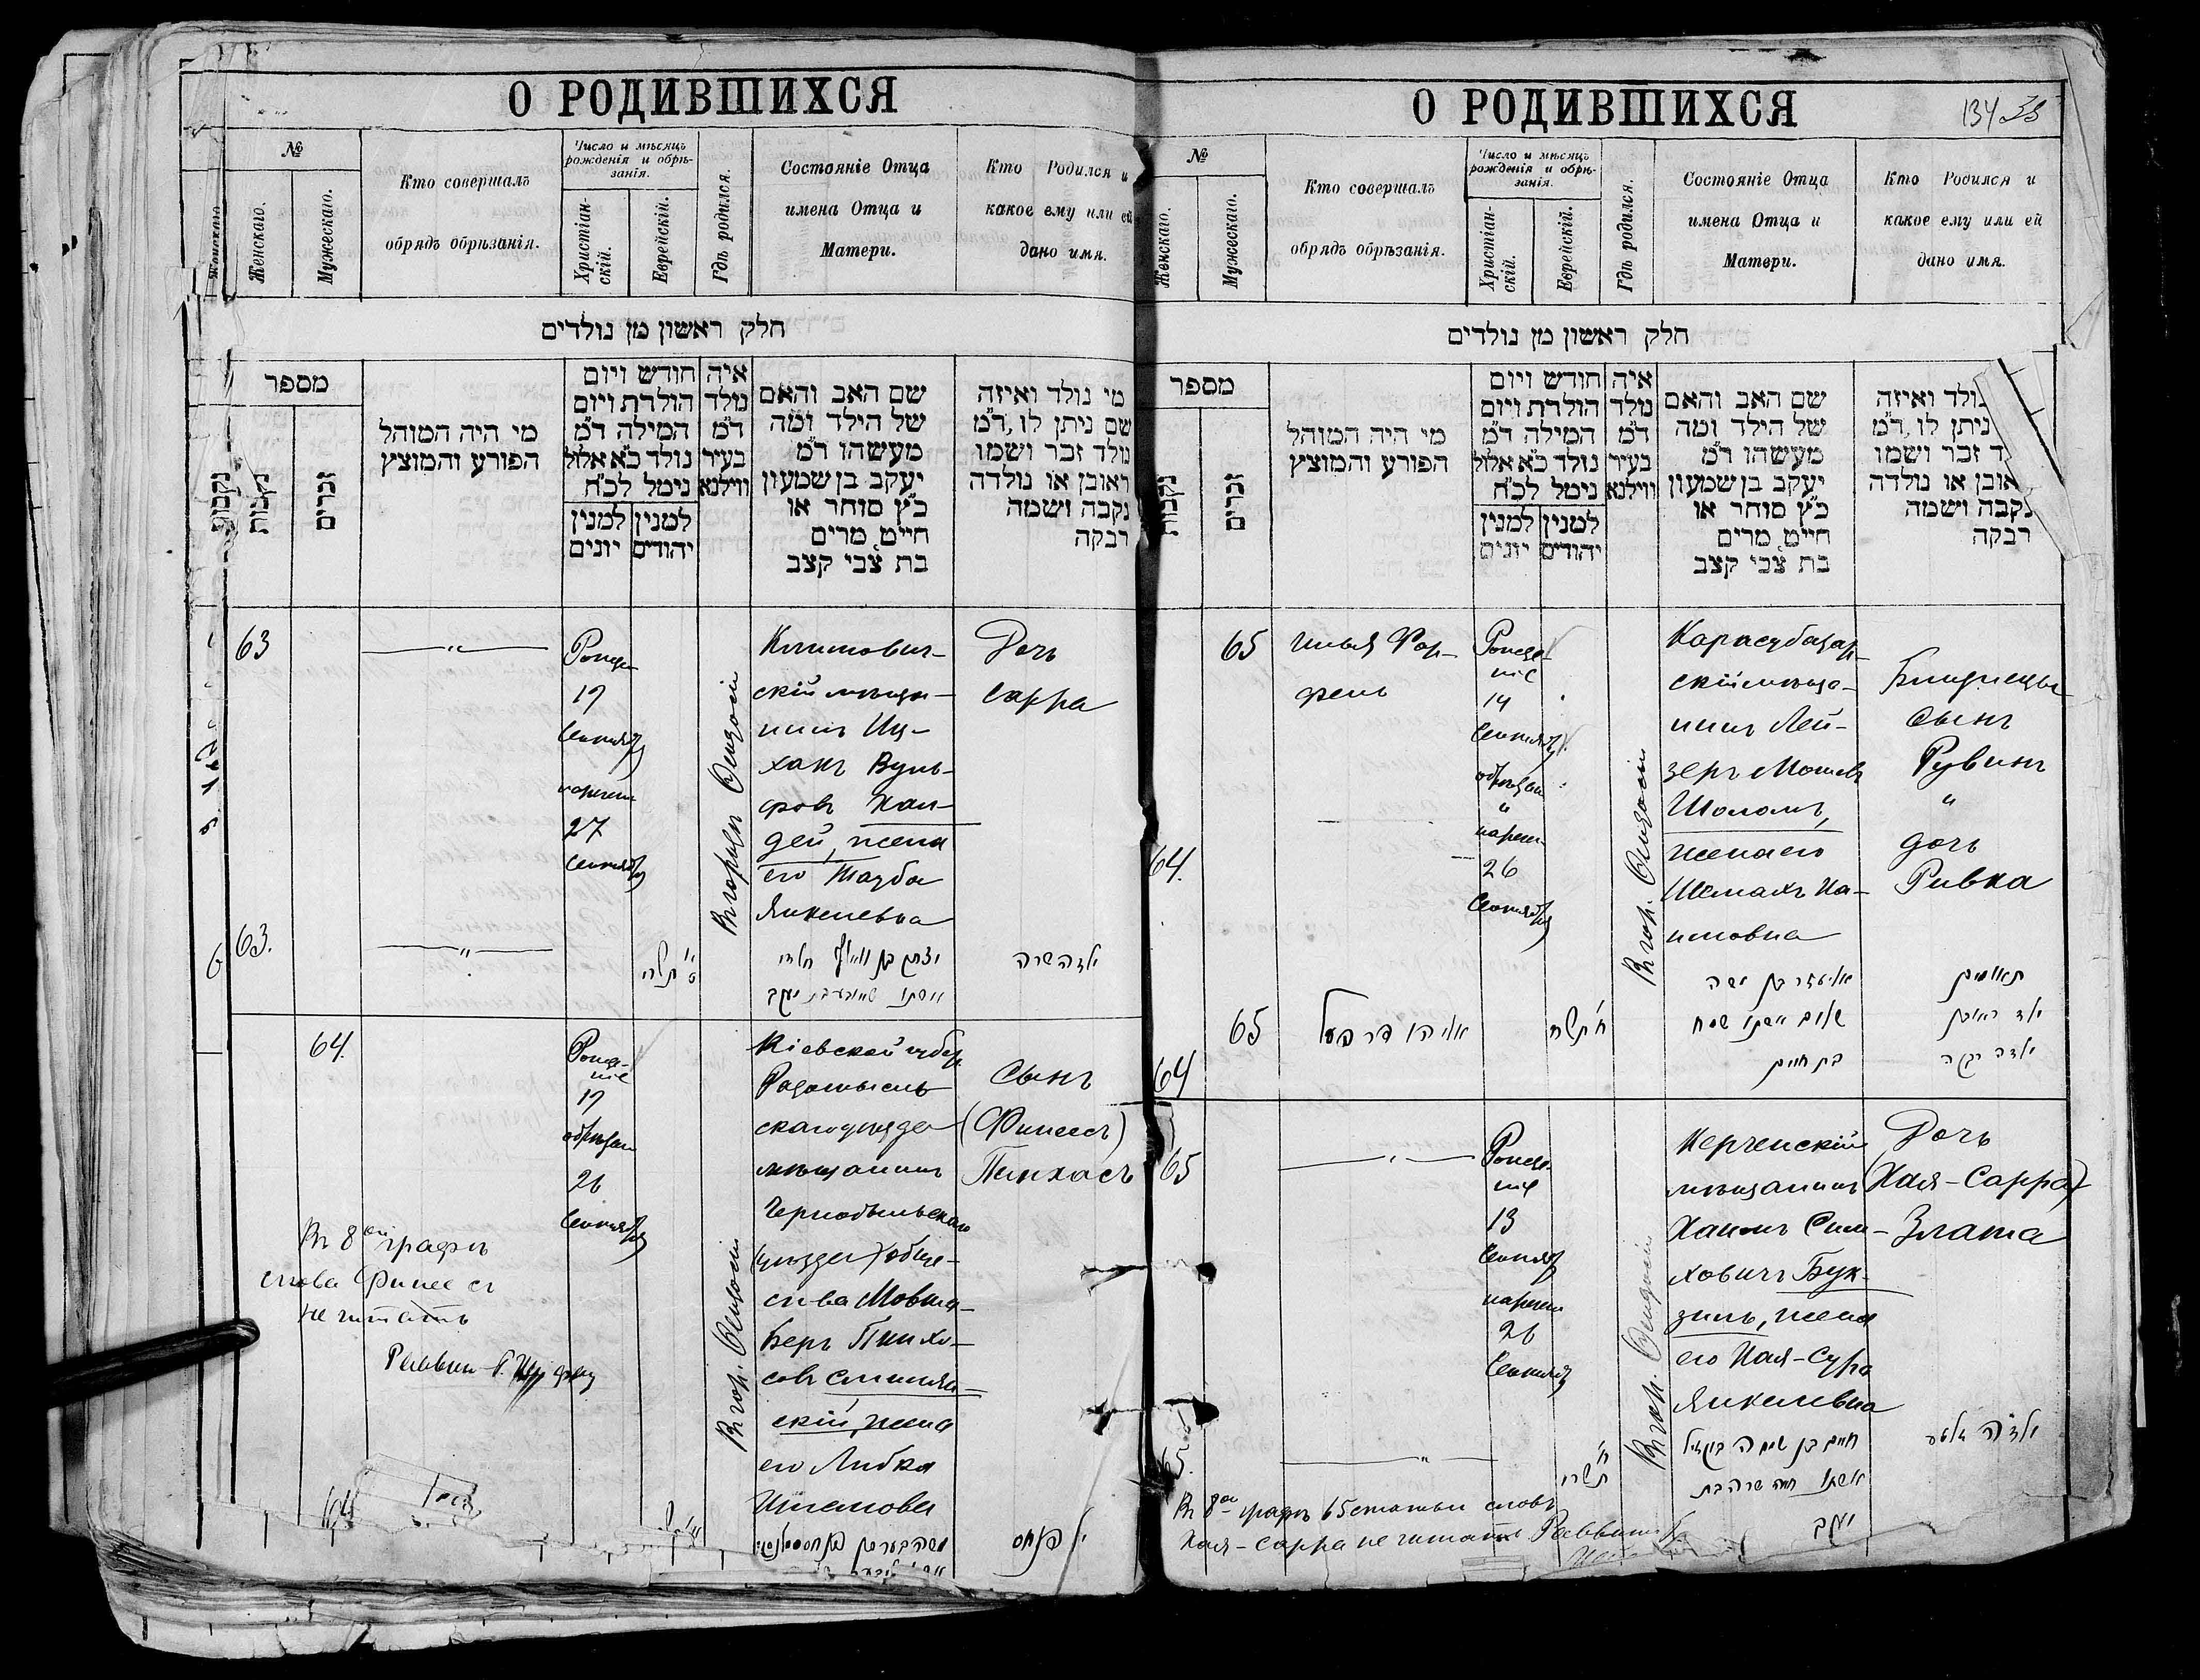 О РОДИВШИХСЯ
№
Женскаго.
Мужескаго.
Кто совершалъ
обрядъ обрѣзанія.
Число и мѣсяцъ
рожденія и обрѣ-
занія.
Христіан-
скій.
Еврейскій.
Гдѣ родился.
Состояніе Отца
имена Отца и
Матери.
Кто Родился и
какое ему или ей
дано имя.
חלק ראשון מן נולדים
מספר
נקבות
זכרים
מי היה המוהל
הפורע והמוצץ
חודש ויום
הולדת ויום
המילה ד״מ
נולד כ״א אלול
נימל לכ״ח
למנין
יהודים
למנין
יונים
איה
נולד
ד״מ
בעיר
ווילנא
שם האב והאם
של הילד ומה
מעשהו ד״מ
יעקב בן שמעון
כ״ץ סוחר או
חייט מרים
בת צבי קצב
מי נולד ואיזה
שם ניתן לו ד״מ
נולד זכר ושמו
ראובן או נולדה
נקבה ושמה
רבקה
63
17
Сентября
27
Сентября
скій мѣща-
нинъ Иц-
хакъ Вуль-
фовъ Хал-
дей, жена
его Тауба
Янкелевна
Дочь
Сарра
63.
יצחק בן וואלף חלדי
ילדה שרה
64.
17
26
Сентября
Кіевской губер.
Радомысль-
скаго уѣзда
мѣщанинъ
Чернобыльскаго
(уѣзда) обще-
ства Мовша-
Беръ Пинхо-
совъ
скій, жена
его Либка
Сынъ
(Финеесъ)
Пинхасъ
Въ 8ой графѣ
слова Финеесъ
не читать
Раввинъ
64
О РОДИВШИХСЯ
134
№
Женскаго.
Мужескаго.
Кто совершалъ
обрядъ обрѣзанія.
Число и мѣсяцъ
рожденія и обрѣ-
занія.
Христіан-
скій.
Еврейскій.
Гдѣ родился.
Состояніе Отца
имена Отца и
Матери.
Кто Родился и
какое ему или ей
дано имя.
חלק ראשון מן נולדים
מספר
נקבות
זכרים
מי היה המוהל
הפורע והמוצץ
חודש ויום
הולדת ויום
המילה ד״מ
נולד כ״א אלול
נימל לכ״ח
למנין
יהודים
למנין
יונים
איה
נולד
ד״מ
בעיר
ווילנא
שם האב והאם
של הילד ומה
מעשהו ד״מ
יעקב בן שמעון
כ״ץ סוחר או
חייט מרים
בת צבי קצב
נולד ואיזה
ניתן לו ד״מ
זכר ושמו
או נולדה
נקבה ושמה
רבקה
65
64.
Илья
Сентября
26
Сентября
Карасубазар-
скій мѣща-
нинъ Лей-
зеръ Мошевъ
Шоломъ,
жена его
Близнецы
Сынъ
Рувинъ
"
дочь
Ривка
65
64
אליעזר בן משה
שלום אשתו שמח
בת חיים
תאומים
ילד ראובן
ילדה רבקה
65
13
Сентяб
26
Сентяб
Керченскій
мѣщанинъ
Хаимъ Сим-
ховичъ Бук-
зилъ, жена
его Хая-Сура
Янкелевна
Дочь
(Хая-Сарра)
Злата
65.
תשרי
חיים בן שמחה
אשתו חיה שרה בת
יעקב
Въ 8ой графѣ 65 статьи словъ
Хая-Сарра не читать Раввинъ